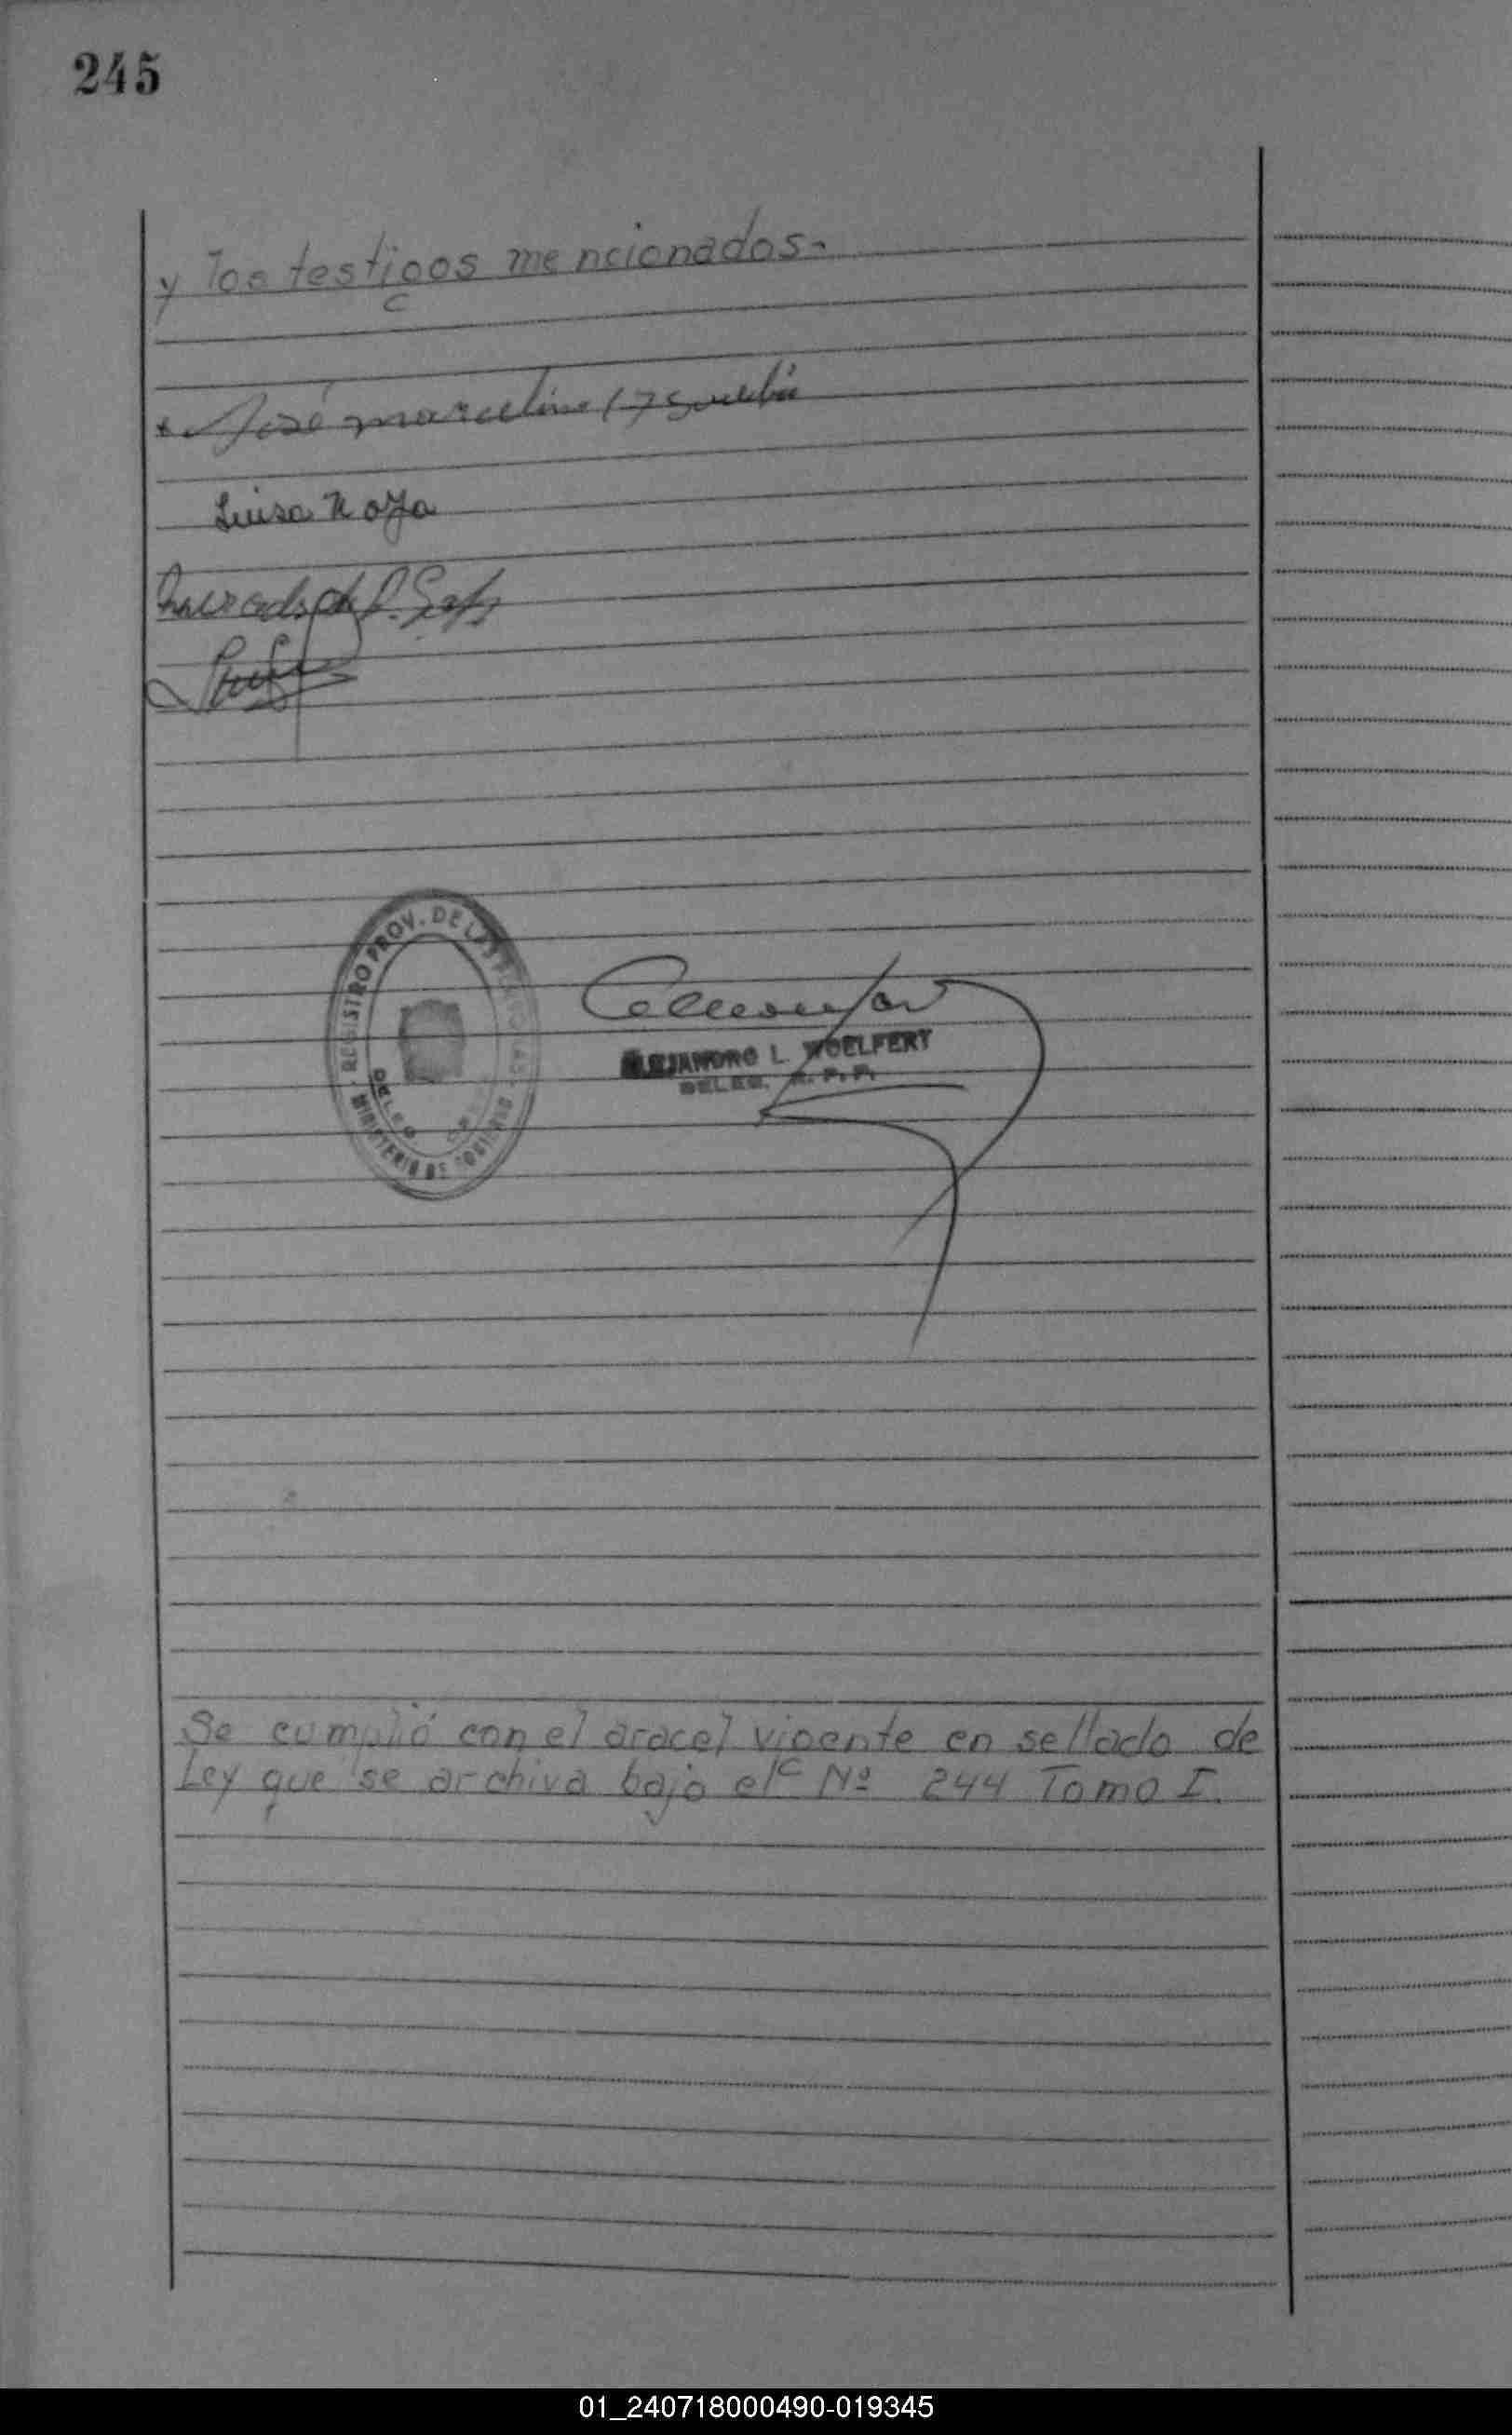 245
y los testigos mencionados.-
José Marcelino
Luisa
REGISTRO PROV. DE LAS
MINISTERIO DE
DELEG
ALEJANDRO L. WOELFERT
DELEG. R. P. P.
Se cumplió con el aracel vigente en sellado de
Ley que se archiva bajo el Nº 244 Tomo I.
01_240718000490-019345